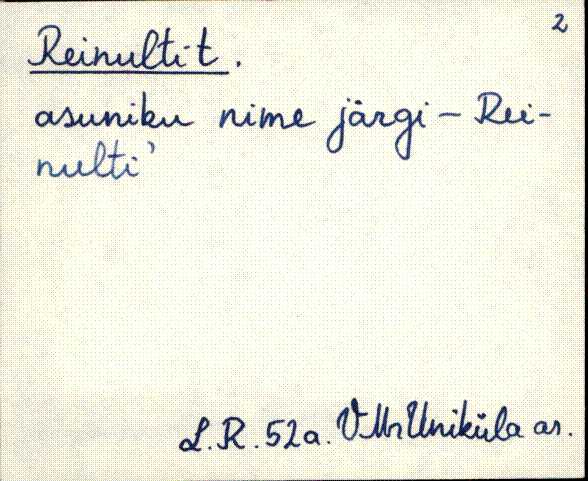 2
Reinulti-t.
asuniku nime järgi – Rei-
nulti'
L.R. 52a. VMr Uniküla as.